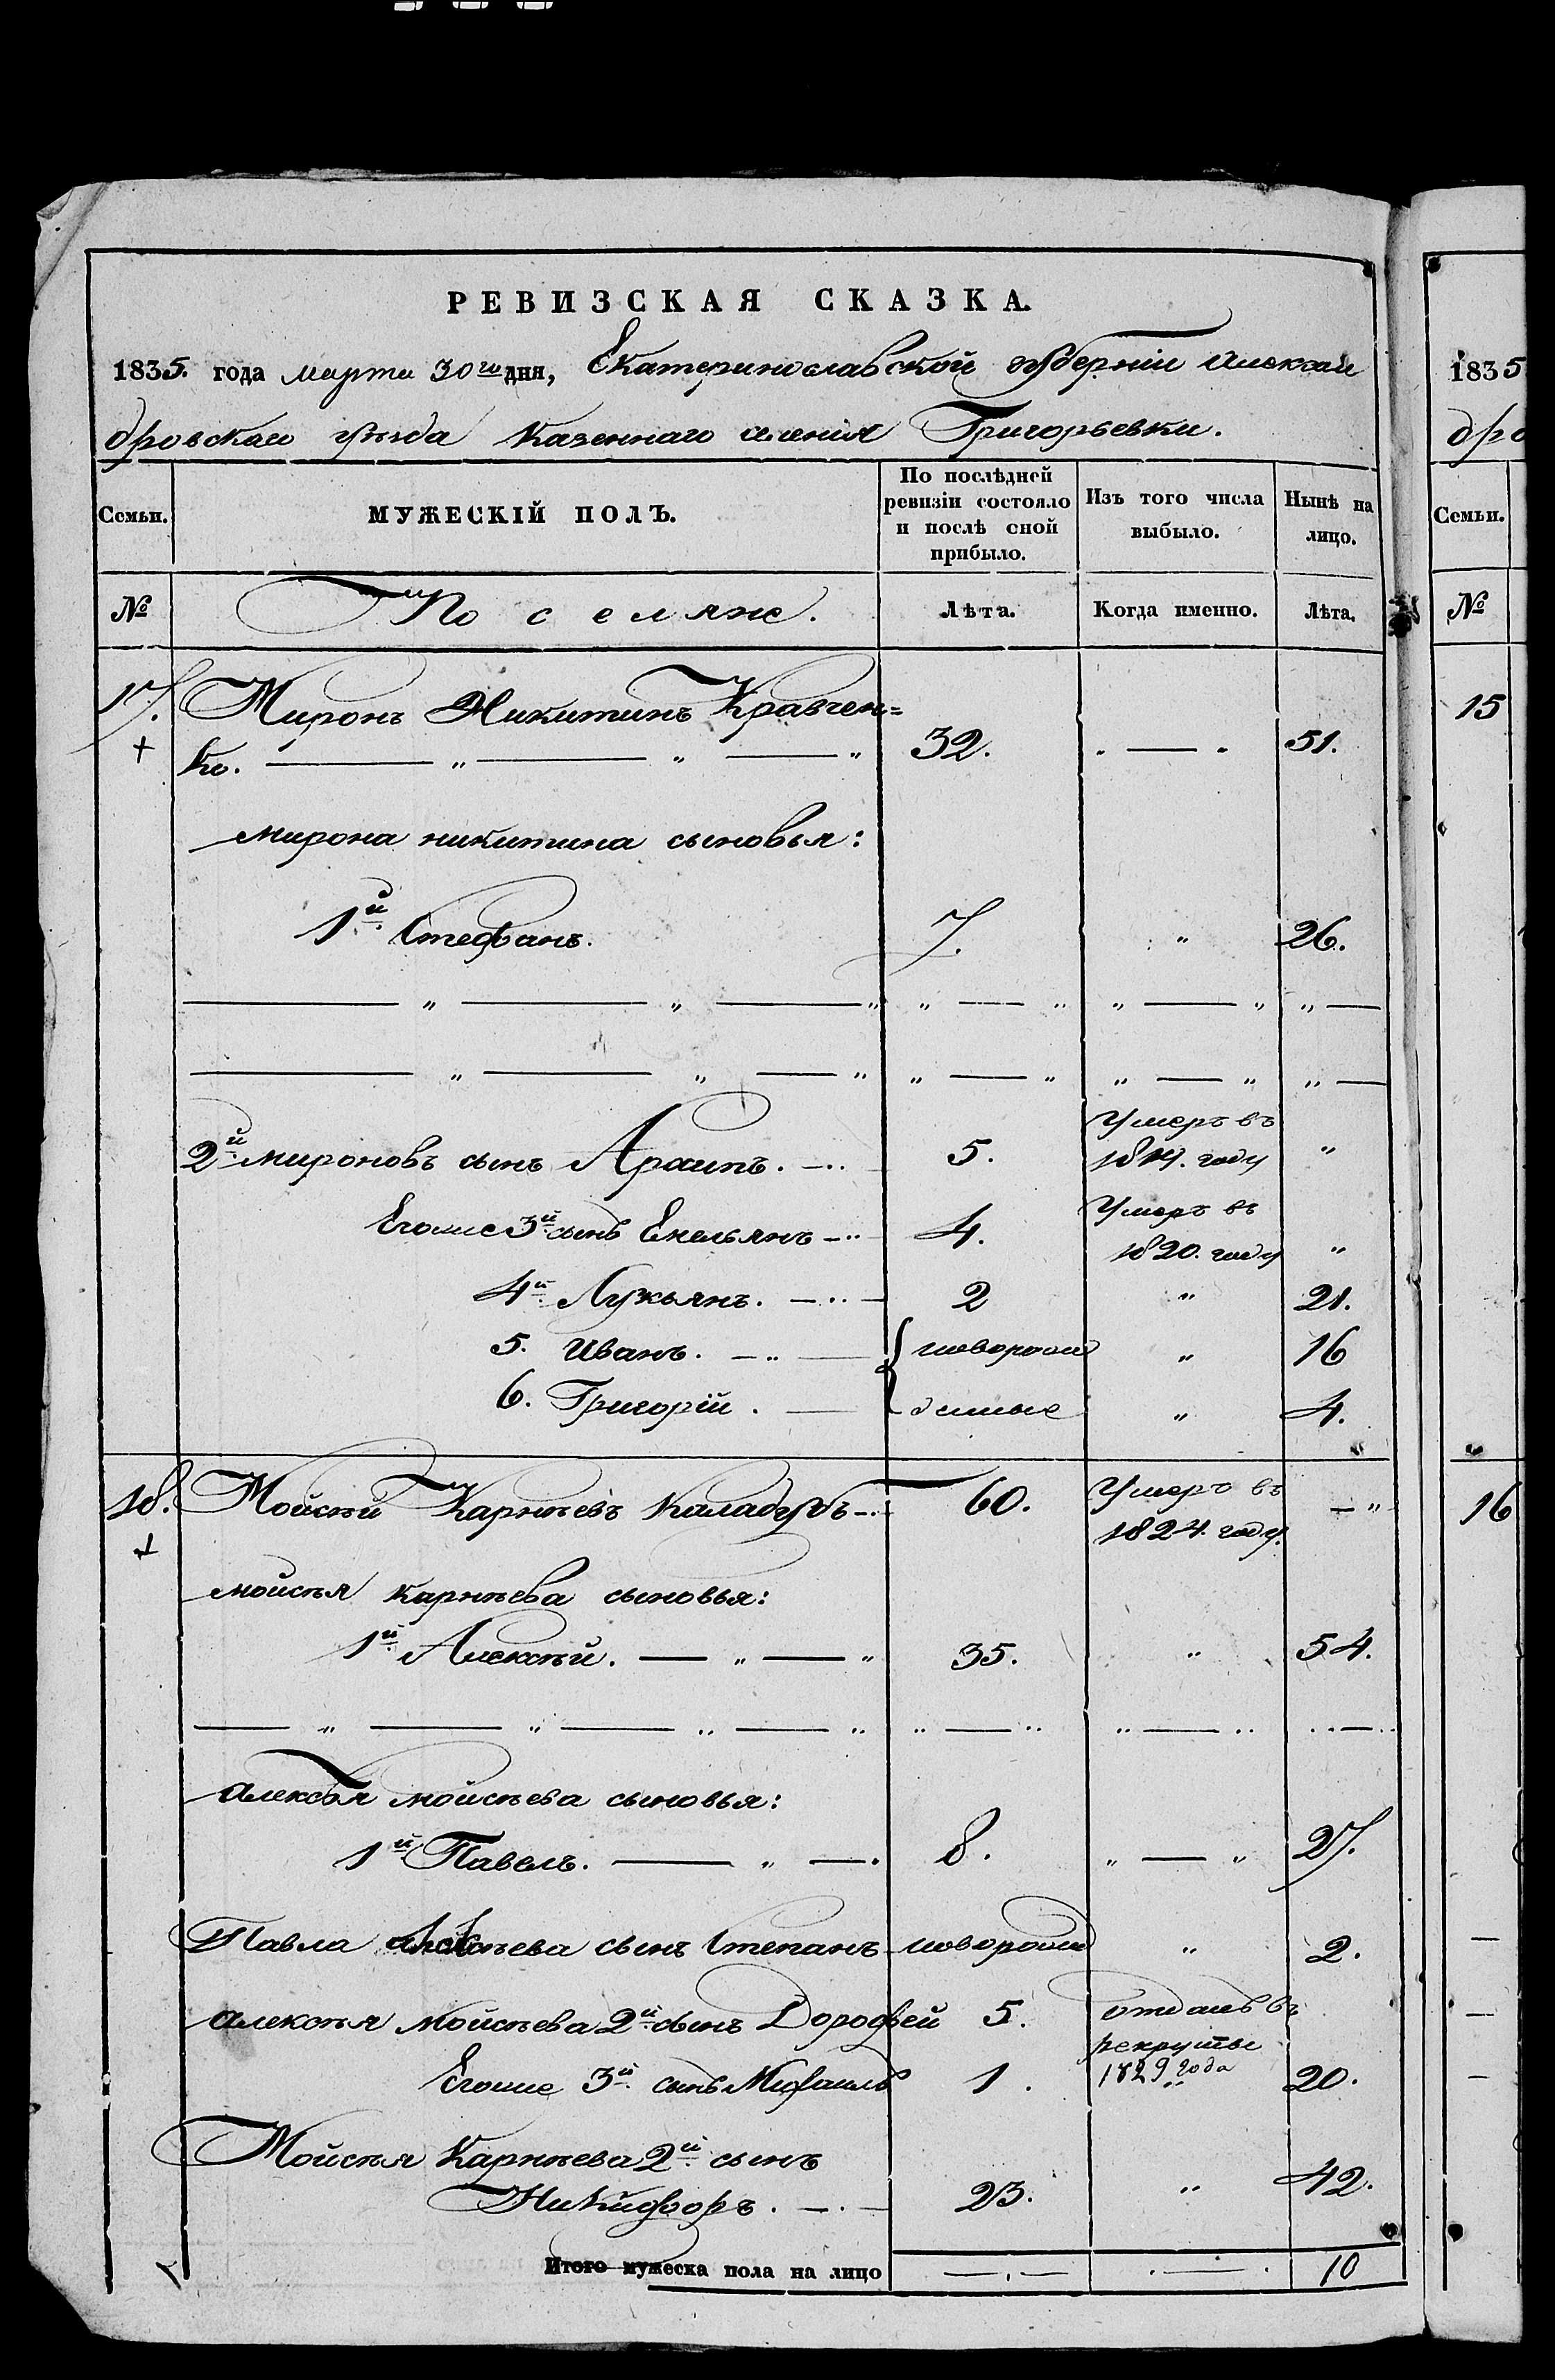 РЕВИЗСКАЯ СКАЗКА.
1835. года марта 30го дня, Екатеринославской губерніи Алексан
дровскаго уѣзда Казеннаго селенія Григорьевки.
Семьи.
МУЖЕСКІЙ ПОЛЪ.
По послѣдней
ревизіи состояло
и послѣ оной
прибыло.
Изъ того числа
выбыло.
Нынѣ на
лицо.
№
Поселяне.
Лѣта.
Когда именно.
Лѣта.
17. Миронъ Никитинъ Кравчен=
+ ко. — „ — „ — „ 32. . — . 51.
Мирона никитина сыновья:
1й Стефанъ. 7. „ 26.
— „ — „ — „ „ — „ „ — „ „ —
— „ — „ — „ „ — „ „ — „ „ —
2й мироновъ сынъ Архипъ. 5. Умеръ въ
18 году „
Егоже 3й сынъ Емельянъ 4. Умеръ въ
1820. году „
4й Лукьянъ. 2 „ 21.
5. Иванъ. новорож „ 16
6. Григорій. денные „ 4.
18. Мойсѣй Карнѣевъ Каладубъ 60. Умеръ въ
+ 1824. году. — „
мойсѣя карнѣева сыновья:
1й Алексѣй. — „ — „ 35. „ 54.
— „ — „ — „ — „ „ — „ „ — „ „ — „
Алексѣя мойсѣева сыновья:
1й Павелъ. — „ — . 8. „ — „ 27.
Павла алексѣева сынъ Степанъ новорож „ 2.
Алексѣя Мойсѣева 2й сынъ Дорофей 5. отданъ въ
рекруты
1829 года
Егоже 3й сынъ Михаилъ 1. „ 20.
Мойсѣя Карнѣева 2й сынъ
Никифоръ. 23. „ 42.
Итого мужеска пола на лицо — . — . — . 10
1835
дро
Семьи.
№
15
16